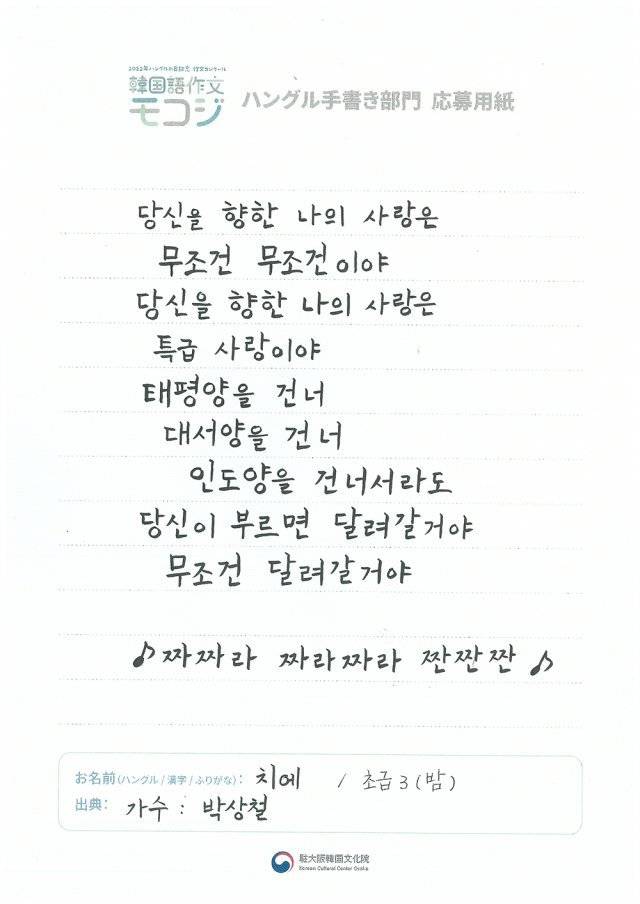 2022年ハングルの日記念 作文コンクール
韓国語作文
モコジ
ハングル手書き部門 応募用紙
당신을 향한 나의 사랑은
무조건 무조건이야
당신을 향한 나의 사랑은
특급 사랑이야
태평양을 건너
대서양을 건너
인도양을 건너서라도
당신이 부르면 달려갈거야
무조건 달려갈거야
♪짜짜라 짜라짜라 짠짠짠♪
お名前(ハングル / 漢字 / ふりがな): 치에 / 초급3(밤)
出典: 가수 : 박상철
駐大阪韓国文化院
Korean Cultural Center Osaka